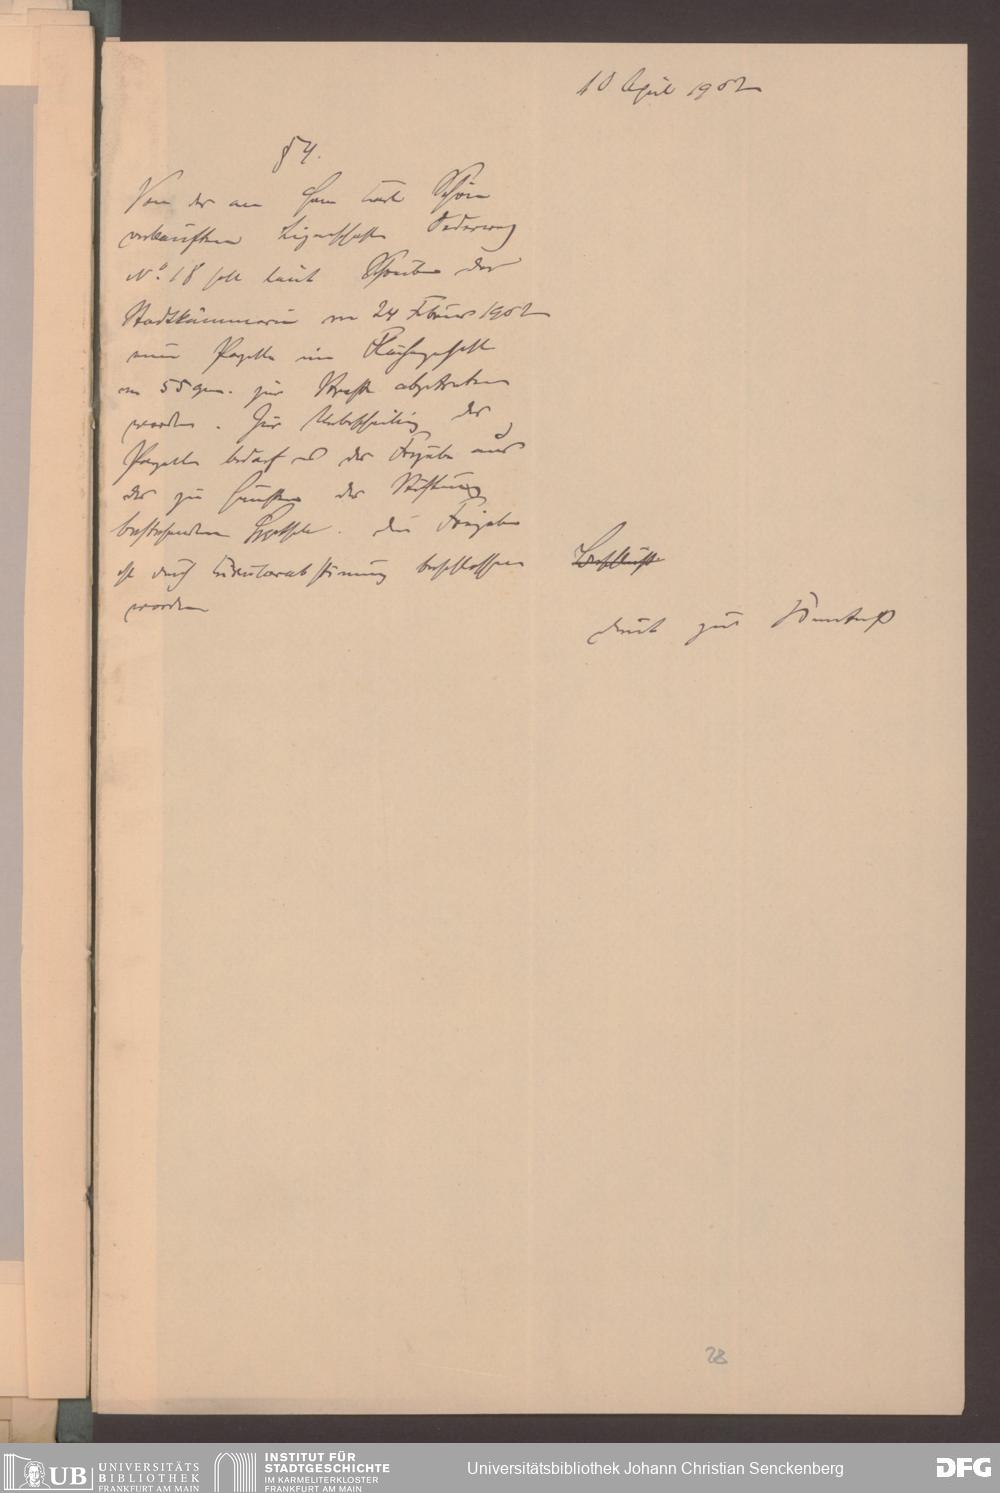 10 April 1902
§ 4.
Von der an Herrn Carl Schön
verkauften Liegenschaft Oederweg
No. 18 soll laut Schreiben der
Stadtkämmerei vom 24 Februar 1902
eine Parzelle im Flächengehalt
von 55 qm. zur Straße abgetreten
werden. Zur Ueberschreibung der
Parzelle bedarf es der Freigabe aus
der zu Gunsten der Stiftung
bestehenden Hypothek. Die Freigabe
ist durch Cirkularabstimmung beschlossen
worden
Beschluss
dient zur Kenntniß
28
UB UNIVERSITÄTS
BIBLIOTHEK
FRANKFURT AM MAIN
INSTITUT FÜR
STADTGESCHICHTE
IM KARMELITERKLOSTER
FRANKFURT AM MAIN
Universitätsbibliothek Johann Christian Senckenberg
DFG